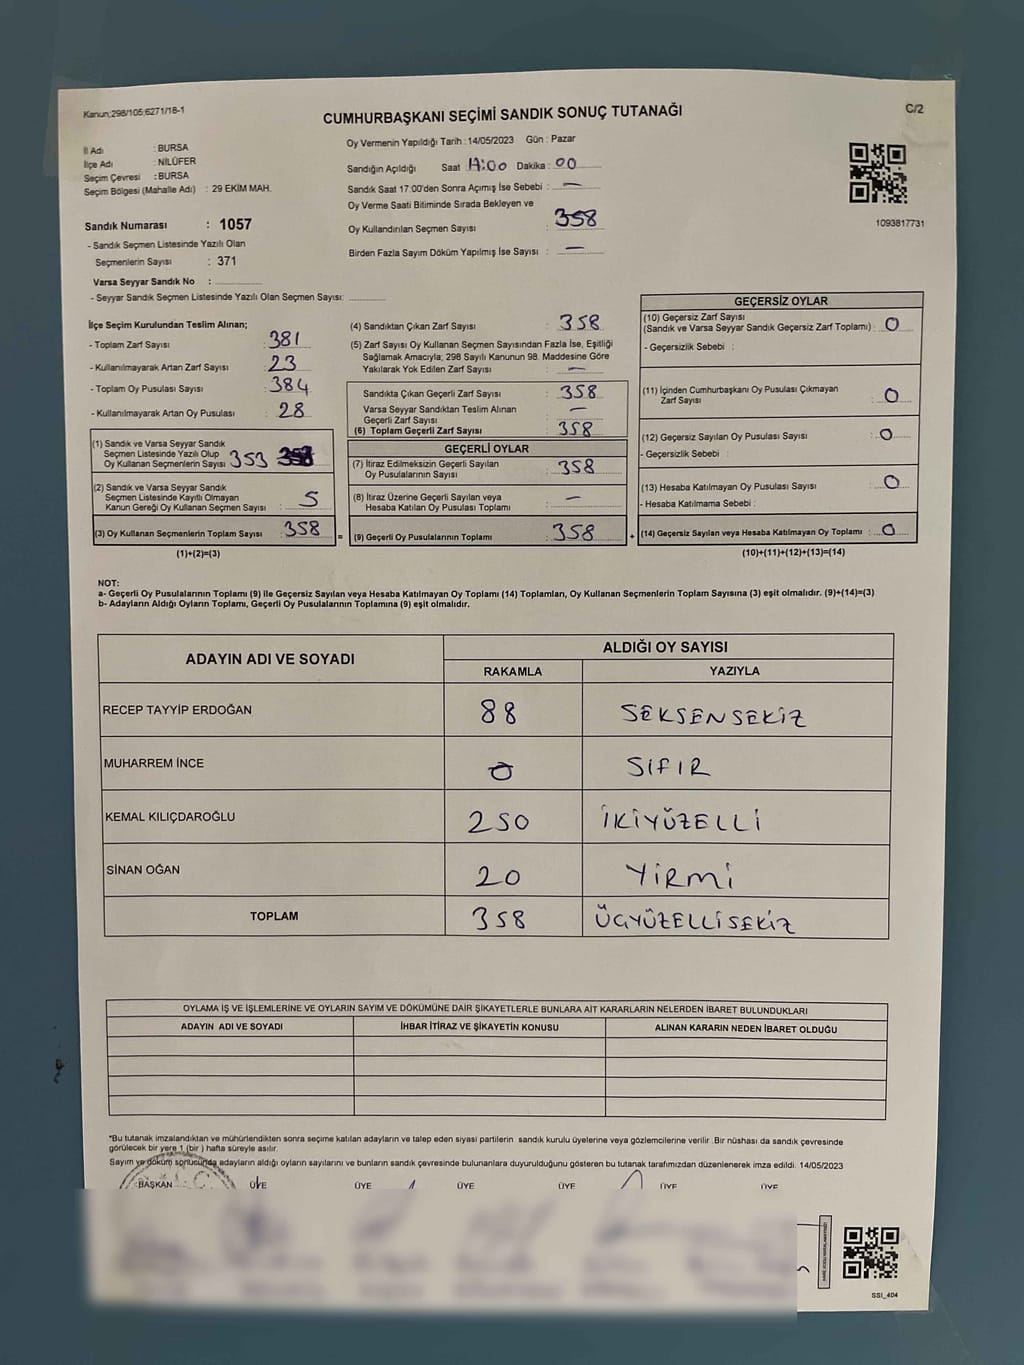 Kanun;298/105;6271/18-1
CUMHURBAŞKANI SEÇİMİ SANDIK SONUÇ TUTANAĞI
C/2
Oy Vermenin Yapıldığı Tarih :14/05/2023 Gün : Pazar
İl Adı : BURSA
İlçe Adı : NİLÜFER
Seçim Çevresi : BURSA
Seçim Bölgesi (Mahalle Adı) : 29 EKİM MAH.
Sandığın Açıldığı Saat :00 Dakika : 00
Sandık Saat 17:00'den Sonra Açımış İse Sebebi : —
Oy Verme Saati Bitiminde Sırada Bekleyen ve
Oy Kullandırılan Seçmen Sayısı : 358
Birden Fazla Sayım Döküm Yapılmış İse Sayısı : —
1093817731
Sandık Numarası : 1057
- Sandık Seçmen Listesinde Yazılı Olan
Seçmenlerin Sayısı : 371
Varsa Seyyar Sandık No :
- Seyyar Sandık Seçmen Listesinde Yazılı Olan Seçmen Sayısı:
İlçe Seçim Kurulundan Teslim Alınan;
- Toplam Zarf Sayısı : 381
- Kullanılmayarak Artan Zarf Sayısı : 23
- Toplam Oy Pusulası Sayısı : 384
- Kullanılmayarak Artan Oy Pusulası : 28
(1) Sandık ve Varsa Seyyar Sandık
Seçmen Listesinde Yazılı Olup
Oy Kullanan Seçmenlerin Sayısı 353
(2) Sandık ve Varsa Seyyar Sandık
Seçmen Listesinde Kayıtlı Olmayan
Kanun Gereği Oy Kullanan Seçmen Sayısı : 5
(3) Oy Kullanan Seçmenlerin Toplam Sayısı : 358 =
(1)+(2)=(3)
(4) Sandıktan Çıkan Zarf Sayısı : 358
(5) Zarf Sayısı Oy Kullanan Seçmen Sayısından Fazla İse, Eşitliği
Sağlamak Amacıyla; 298 Sayılı Kanunun 98. Maddesine Göre
Yakılarak Yok Edilen Zarf Sayısı : —
Sandıkta Çıkan Geçerli Zarf Sayısı : 358
Varsa Seyyar Sandıktan Teslim Alınan
Geçerli Zarf Sayısı : —
(6) Toplam Geçerli Zarf Sayısı : 358
GEÇERLİ OYLAR
(7) İtiraz Edilmeksizin Geçerli Sayılan
Oy Pusulalarının Sayısı : 358
(8) İtiraz Üzerine Geçerli Sayılan veya
Hesaba Katılan Oy Pusulası Toplamı : —
(9) Geçerli Oy Pusulalarının Toplamı : 358 +
GEÇERSİZ OYLAR
(10) Geçersiz Zarf Sayısı
(Sandık ve Varsa Seyyar Sandık Geçersiz Zarf Toplamı) : 0
- Geçersizlik Sebebi :
(11) İçinden Cumhurbaşkanı Oy Pusulası Çıkmayan
Zarf Sayısı : 0
(12) Geçersiz Sayılan Oy Pusulası Sayısı : 0
- Geçersizlik Sebebi :
(13) Hesaba Katılmayan Oy Pusulası Sayısı : 0
- Hesaba Katılmama Sebebi :
(14) Geçersiz Sayılan veya Hesaba Katılmayan Oy Toplamı : 0
(10)+(11)+(12)+(13)=(14)
NOT:
a- Geçerli Oy Pusulalarının Toplamı (9) ile Geçersiz Sayılan veya Hesaba Katılmayan Oy Toplamı (14) Toplamları, Oy Kullanan Seçmenlerin Toplam Sayısına (3) eşit olmalıdır. (9)+(14)=(3)
b- Adayların Aldığı Oyların Toplamı, Geçerli Oy Pusulalarının Toplamına (9) eşit olmalıdır.
ADAYIN ADI VE SOYADI
ALDIĞI OY SAYISI
RAKAMLA YAZIYLA
RECEP TAYYİP ERDOĞAN 88 SEKSENSEKİZ
MUHARREM İNCE 0 SIFIR
KEMAL KILIÇDAROĞLU 250 İKİYÜZELLİ
SİNAN OĞAN 20 YİRMİ
TOPLAM 358 ÜÇYÜZELLİSEKİZ
OYLAMA İŞ VE İŞLEMLERİNE VE OYLARIN SAYIM VE DÖKÜMÜNE DAİR ŞİKAYETLERLE BUNLARA AİT KARARLARIN NELERDEN İBARET BULUNDUKLARI
ADAYIN ADI VE SOYADI İHBAR İTİRAZ VE ŞİKAYETİN KONUSU ALINAN KARARIN NEDEN İBARET OLDUĞU
*Bu tutanak imzalandıktan ve mühürlendikten sonra seçime katılan adayların ve talep eden siyasi partilerin sandık kurulu üyelerine veya gözlemcilerine verilir .Bir nüshası da sandık çevresinde
görülecek bir yere 1 (bir ) hafta süreyle asılır.
Sayım ve döküm sonucunda adayların aldığı oyların sayılarını ve bunların sandık çevresinde bulunanlara duyurulduğunu gösteren bu tutanak tarafımızdan düzenlenerek imza edildi. 14/05/2023
BAŞKAN ÜYE ÜYE ÜYE ÜYE ÜYE ÜYE
SSI_404